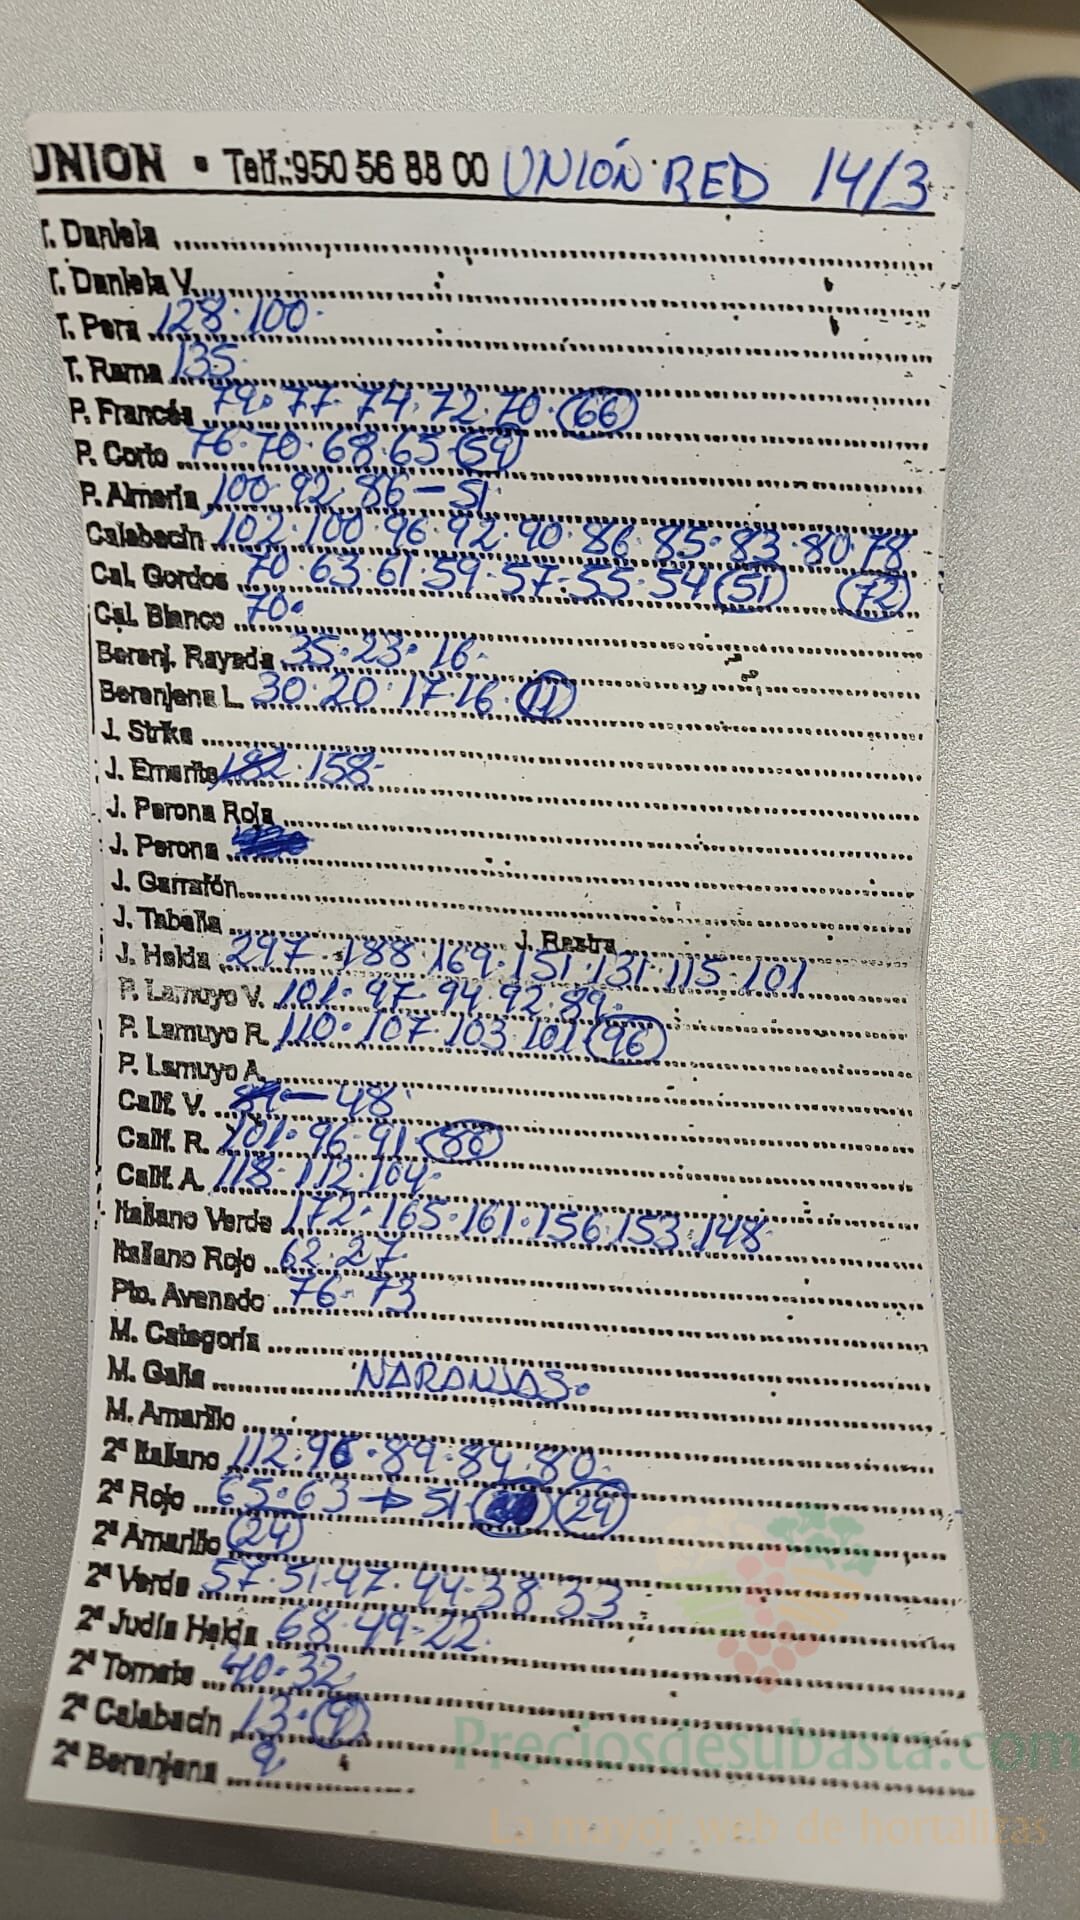 UNION • Telf.:950 56 88 00 UNIÓN RED 14/3
T. Daniela
T. Daniela V.
T. Pera 128·100·
T. Rama 135·
P. Francés 79·77·74·72·70·(66)
P. Corto 76·70·68·65·(59)
P. Almería 100·92·86—51·
Calabacín 102·100·96·92·90·86·85·83·80·78 (72)
Cal. Gordos 70·63·61·59·57·55·54 (51)
Cal. Blanco 70·
Berenj. Rayada 35·23·16·
Berenjena L. 30·20·17·16·(11)
J. Strike
J. Emerite 182·158·
J. Perona Roja
J. Perona
J. Garrafón
J. Tabella J. Rastra
J. Helda 297·188·169·151·131·115·101
P. Lamuyo V. 101·97·94·92·89·
P. Lamuyo R. 110·107·103·101(96)
P. Lamuyo A.
Calif. V. —48·
Calif. R. 101·96·91·(86)
Calif. A. 118·112·104·
Italiano Verde 172·165·161·156·153·148·
Italiano Rojo 62·27·
Pto. Avenado 76·73
M. Categoría
M. Galia NARANJAS·
M. Amarillo
2ª Italiano 112·96·89·84·80·
2ª Rojo 65·63→51· (29)
2ª Amarillo (24)
2ª Verde 57·51·47·44·38·33
2ª Judía Helda 68·49·22·
2ª Tomate 40·32
2ª Calabacín 13·(9)
2ª Berenjena 9·
Preciosdesubasta.com
La mayor web de hortalizas